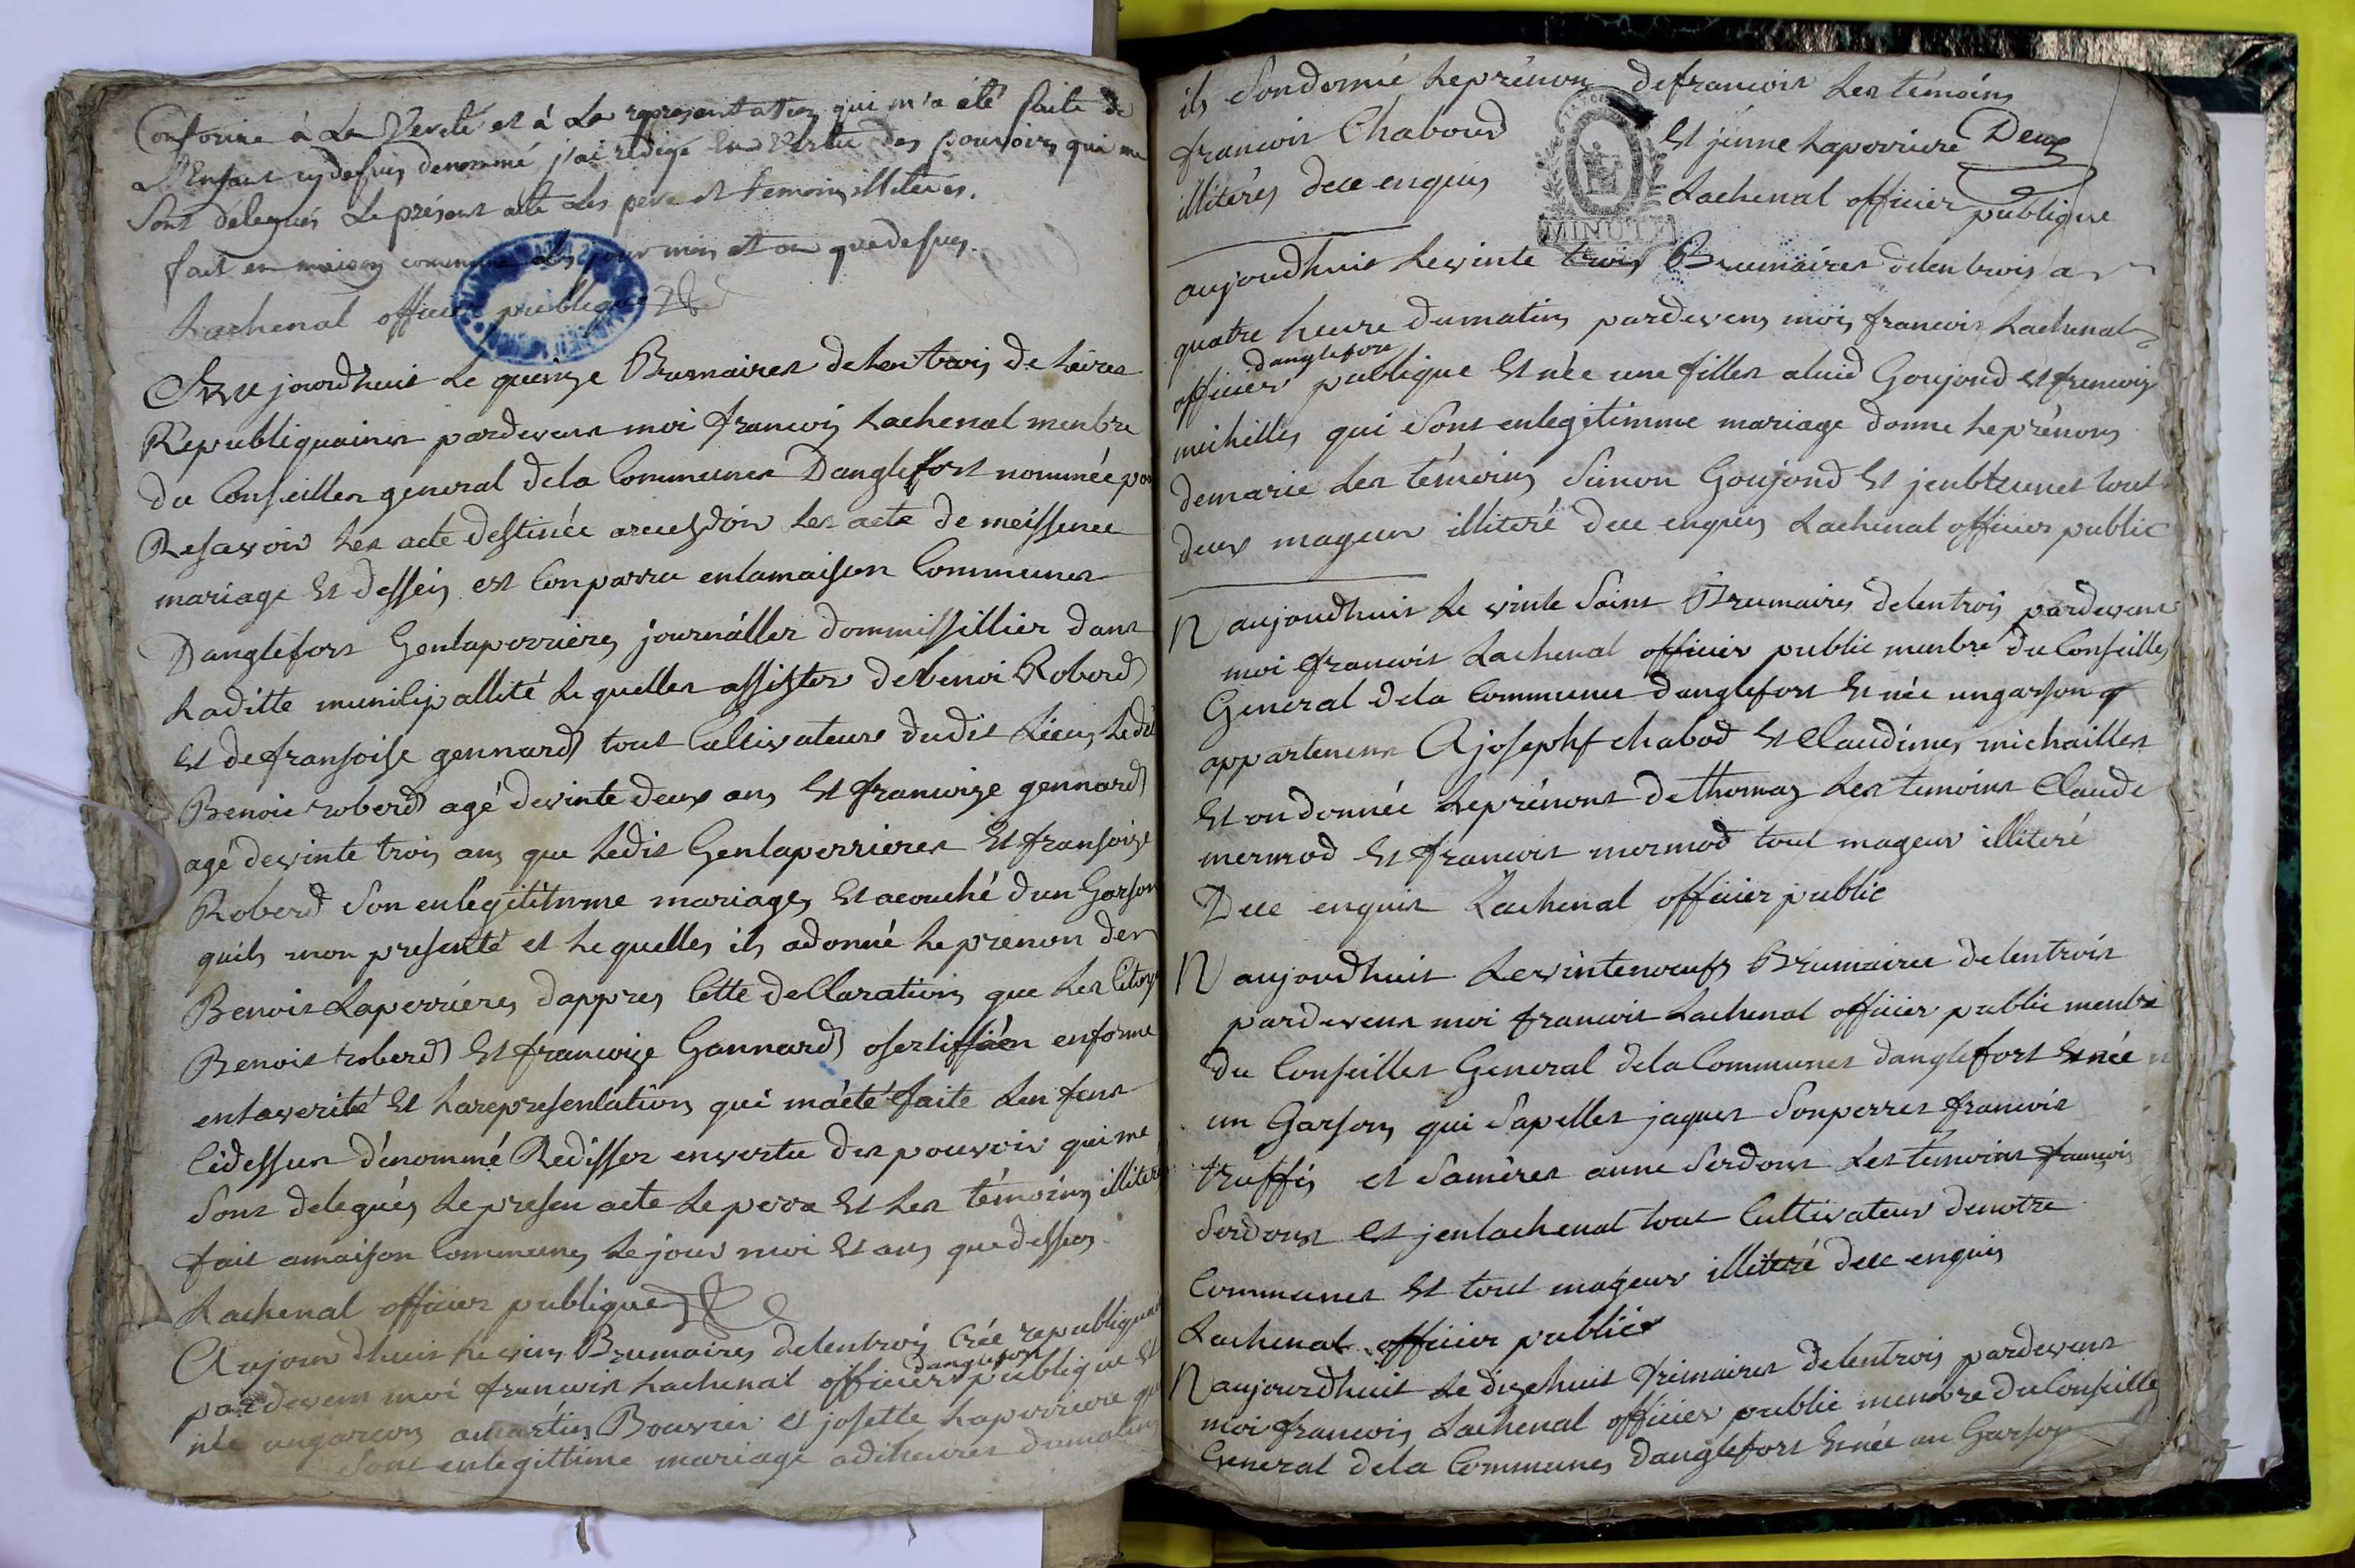 Conforme à La Verité et à La representation qui m'a été faite de
L'Enfant cydessus denommé j'ai redigé En Vertu des pouvoirs qui me
Sont délegués Le présent acte Les pere et temoins illiteres.
fait en maison commune Les jour mois et an que dessus.
Lachenal officier publique
Aujourdhuit Le quinze Brumaires delentrois de Leires
Republiquaines pardevens moi francois Lachenal menbre
du Conseilles general dela Communes Danglefort nommée pour
Resavoir Les acte destinée a Les acte de neissence
mariage Et desseis est Conparru enlamaison Communes
Danglefort Genlaperrieres journaller dommissillier dans
Laditte municipallité Lequelles assister de benoi Roberd
Et defransoise gennard tout Cultivateurs dudit Lieus Ledit
Benois roberd agé devinte deux ans Et francoize gennard
agé devinte trois ans que Ledit Genlaperrieres Et fransoize
Roberd Son enlegitimme mariages Et acouché dun Garson
quils mon presenté et Lequelles ils adonné Leprenon der
Benois Laperriéres dappres Cette declaration que Les Citoy
Benois roberd Et francoize Gannard enforme
entaverité Et Larepresentation qui maété faite Lenfens
Cidessus dénommé Redisser envertu des pouvoir qui me
Sont delegués Lepresen acte Leperre Et Les témoins illiteré
fait amaison Communes Lejour moi Et ans quedessus
Lachenal officier publique
Aujourdhuit Levins Brumaires delentrois Lére republiquaine
danglefort
pardevens moi francois Lachenal officier publique Et
née ungarcon amartin Bouvier et josette Laperriere qui
Sont enlegittime mariage adiheures dumatin
ils Sondonné Leprénon defrancois Les témoins
francois Chaboud Et jénne Laperriere Deux
illiterés dece enquis Lachenal officier publique
MINUTE
aujoudhuit Levinte trois Brumaires delentrois a
quatre heure dumatins pardevens mois francois Lachenal
danglefore
officier publique Et née une filles aluid Goujond Et frencois
michilles qui Sont enlegitimme mariage donne Leprénons
demarie Les témoins Simon Goujond Et tout
deux mageur illiteré dece enquis Lachenal officier public
N aujoudhuit Le vinte Saint Brumaires delentrois pardevens
moi francois Lachenal officier public menbre du Conseilles
General dela Communes danglefort Et née ungarson
appartenens A josephf chabod Et Claudines michailles
Et ondonnée Leprénons dethomas Les temoins Claude
mermod Et francois mermod tout mageur illiteré
Dece enquis Lachenal officier public
N aujoudhuit Levintenoeufs Brumaires delentrois
pardevens moi francois Lachenal officier public menbre
du Conseilles General dela Communes danglefort Et née
un Garsons qui Sapelles jaques Sonperres francois
truffés et Saméres anne Serdons Les temoins francois
Serdons Et jenlachenal tout Cultivateur denotre
Communes Et tout mageur illiteré dece enquis
Lachenal officier public
N aujourdhuit Le dizehuit frimaires delentrois pardevens
moi francois Lachenal officier public menbre du Conseilles
General dela Communes Danglefort Et née un Garson